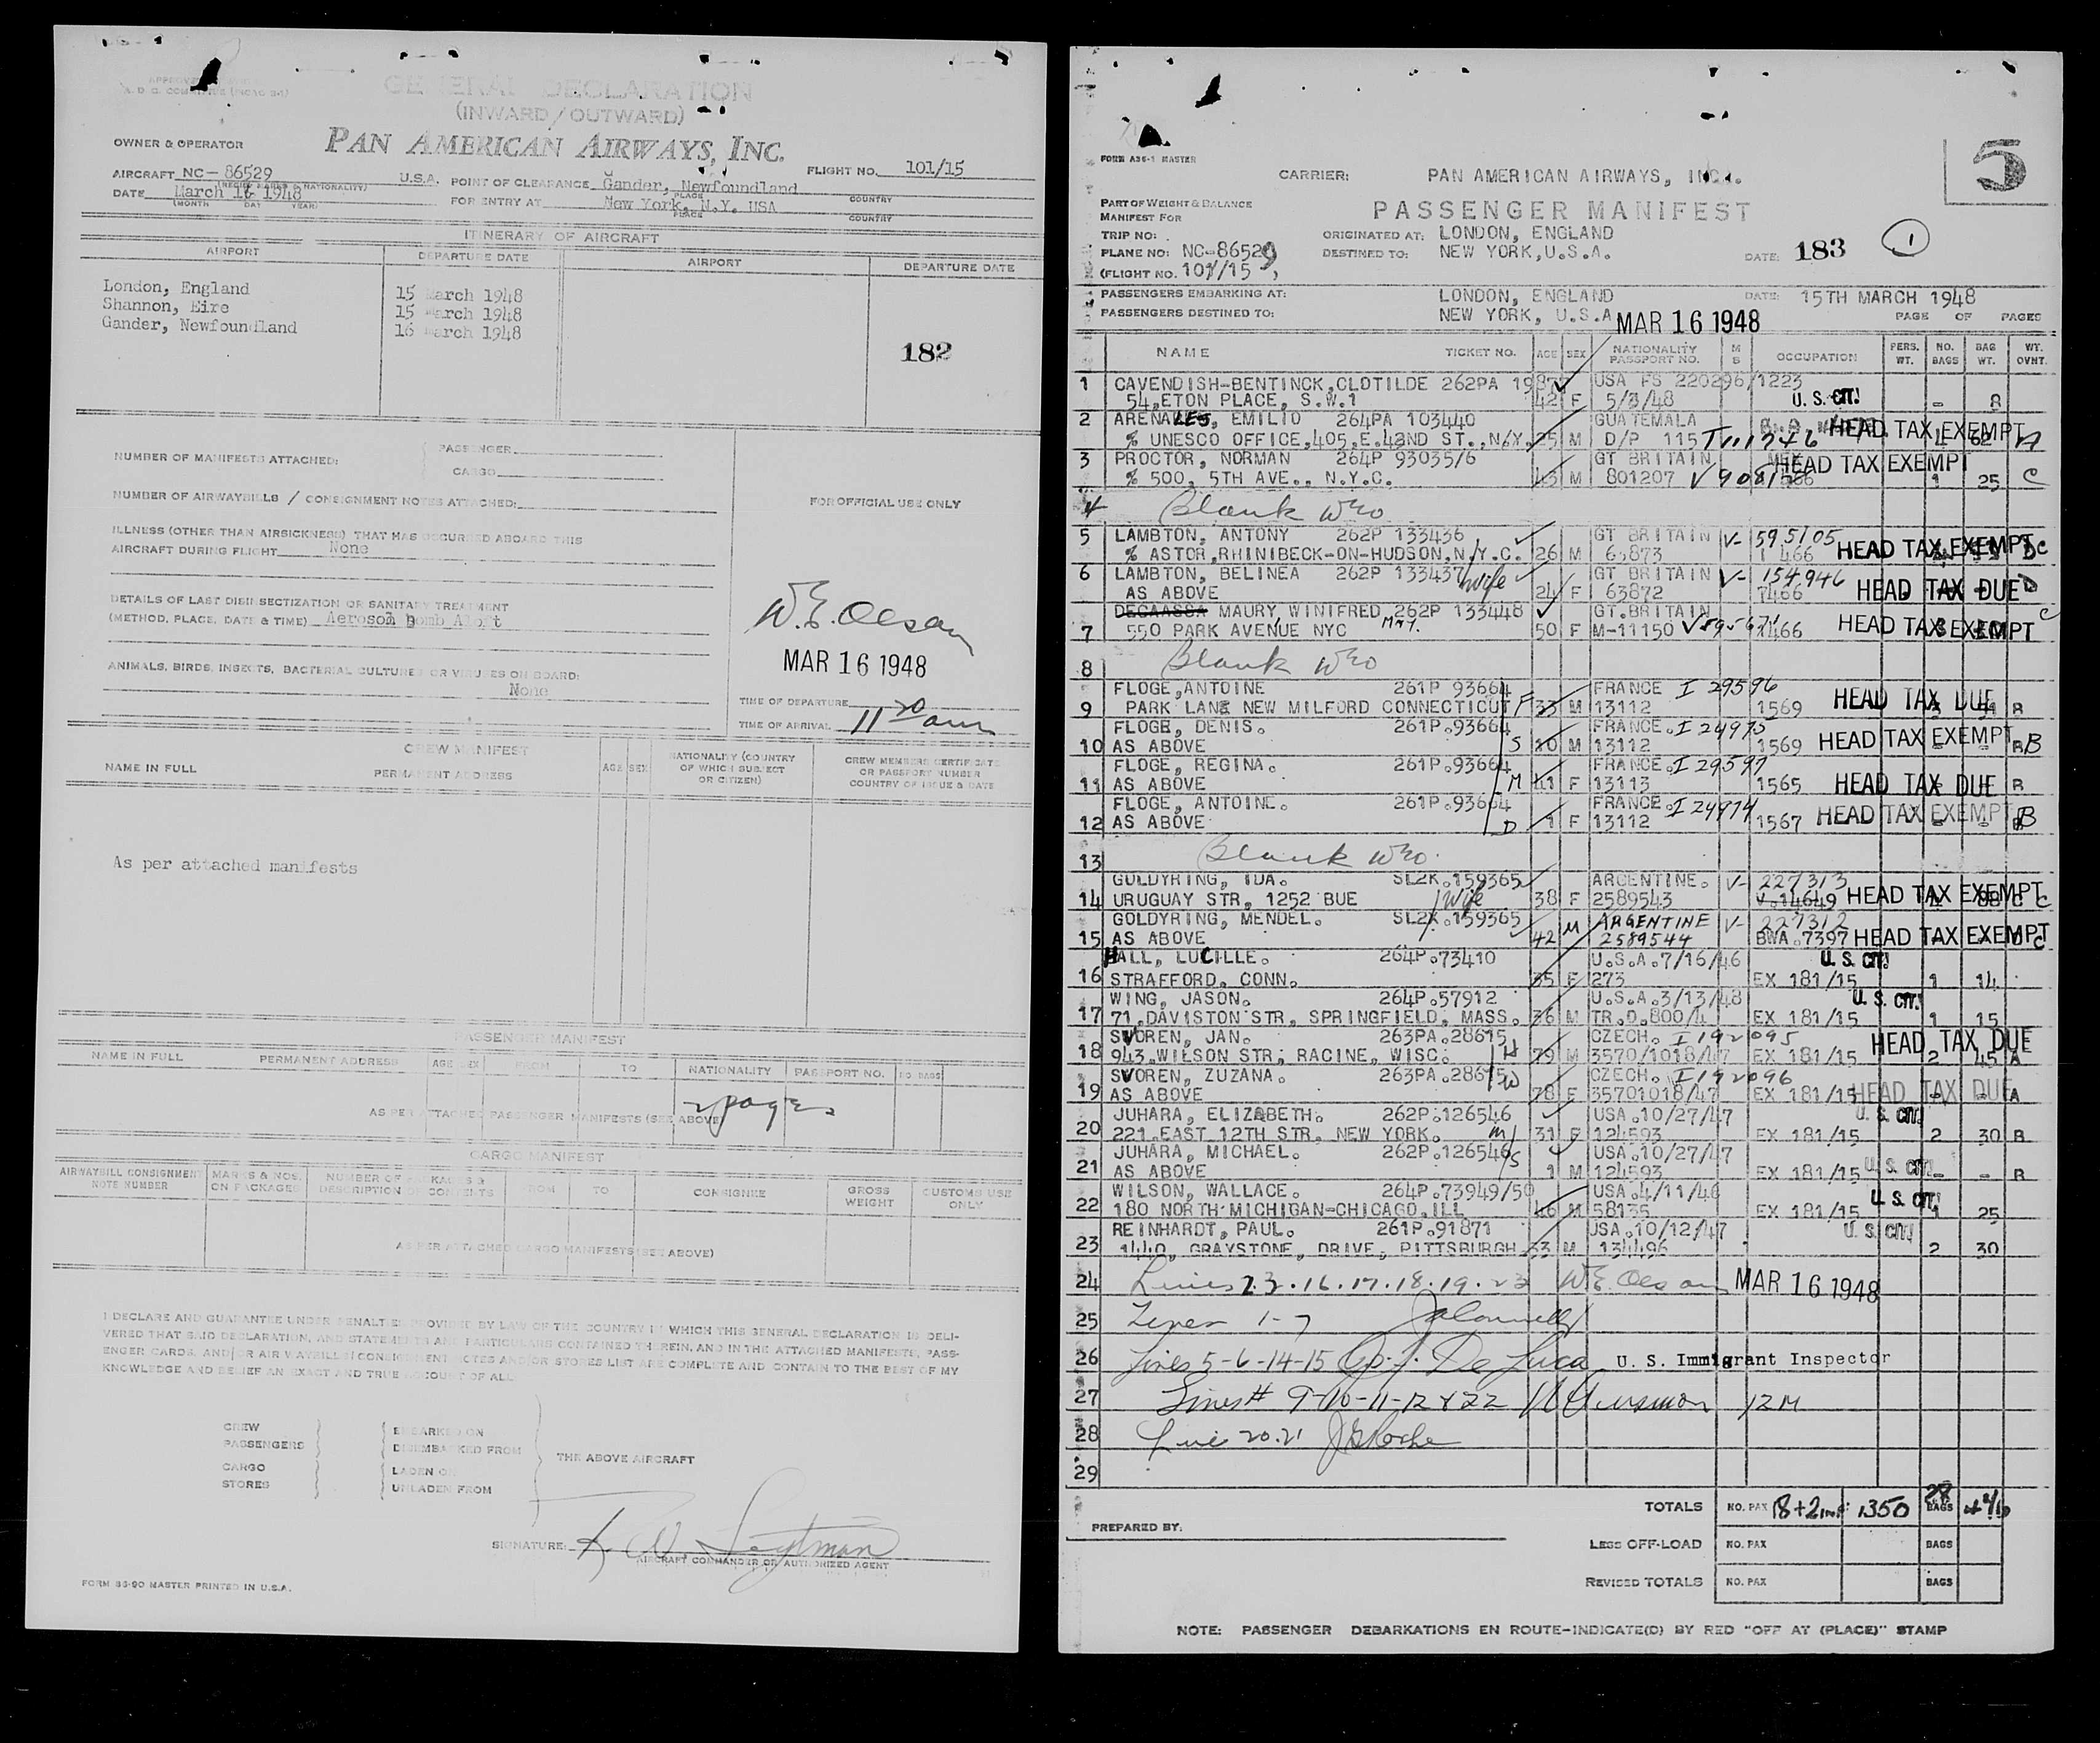 APPROVED
GENERAL DECLARATION
(INWARD/OUTWARD)
OWNER & OPERATOR PAN AMERICAN AIRWAYS, INC.
AIRCRAFT NC-86529 U.S.A. POINT OF CLEARANCE Gander, Newfoundland FLIGHT NO. 101/15
(REGIS. MARKS & NATIONALITY) PLACE COUNTRY
DATE March 16 1948 FOR ENTRY AT New York, N.Y. USA
(MONTH DAY YEAR) PLACE COUNTRY
ITINERARY OF AIRCRAFT
AIRPORT DEPARTURE DATE AIRPORT DEPARTURE DATE
London, England 15 March 1948
Shannon, Eire 15 March 1948
Gander, Newfoundland 16 March 1948
182
NUMBER OF MANIFESTS ATTACHED: PASSENGER
CARGO
NUMBER OF AIRWAYBILLS / CONSIGNMENT NOTES ATTACHED:
FOR OFFICIAL USE ONLY
ILLNESS (OTHER THAN AIRSICKNESS) THAT HAS OCCURRED ABOARD THIS
AIRCRAFT DURING FLIGHT None
DETAILS OF LAST DISINSECTIZATION OR SANITARY TREATMENT
(METHOD, PLACE, DATE & TIME) Aerosol bomb Aloft
W.E. Olesan
MAR 16 1948
ANIMALS, BIRDS, INSECTS, BACTERIAL CULTURES OR VIRUSES ON BOARD:
None
TIME OF DEPARTURE
TIME OF ARRIVAL 11 20 am
CREW MANIFEST
NAME IN FULL PERMANENT ADDRESS AGE SEX NATIONALITY (COUNTRY OF WHICH SUBJECT OR CITIZEN) CREW MEMBERS CERTIFICATE OR PASSPORT NUMBER COUNTRY OF ISSUE & DATE
As per attached manifests
PASSENGER MANIFEST
NAME IN FULL PERMANENT ADDRESS AGE SEX FROM TO NATIONALITY PASSPORT NO. NO. BAGS
2 pages
AS PER ATTACHED PASSENGER MANIFESTS (SEE ABOVE)
CARGO MANIFEST
AIRWAYBILL CONSIGNMENT NOTE NUMBER MARKS & NOS. ON PACKAGES NUMBER OF PACKAGES & DESCRIPTION OF CONTENTS FROM TO CONSIGNEE GROSS WEIGHT CUSTOMS USE ONLY
AS PER ATTACHED CARGO MANIFESTS (SEE ABOVE)
I DECLARE AND GUARANTEE UNDER PENALTIES PROVIDED BY LAW OF THE COUNTRY IN WHICH THIS GENERAL DECLARATION IS DELI-
VERED THAT SAID DECLARATION, AND STATEMENTS AND PARTICULARS CONTAINED THEREIN, AND IN THE ATTACHED MANIFESTS, PASS-
ENGER CARDS, AND/OR AIR WAYBILLS/CONSIGNMENT NOTES AND/OR STORES LIST ARE COMPLETE AND CONTAIN TO THE BEST OF MY
KNOWLEDGE AND BELIEF AN EXACT AND TRUE ACCOUNT OF ALL
CREW EMBARKED ON
PASSENGERS DISEMBARKED FROM
THE ABOVE AIRCRAFT
CARGO LADEN ON
STORES UNLADEN FROM
SIGNATURE:
AIRCRAFT COMMANDER OR AUTHORIZED AGENT
FORM 86-90 MASTER PRINTED IN U.S.A.
5
FORM A36-1 MASTER
CARRIER: PAN AMERICAN AIRWAYS, INC.
PART OF WEIGHT & BALANCE
MANIFEST FOR PASSENGER MANIFEST
TRIP NO: ORIGINATED AT: LONDON, ENGLAND
PLANE NO: NC-86529 DESTINED TO: NEW YORK, U.S.A. DATE: 183 1
(FLIGHT NO. 101/15)
PASSENGERS EMBARKING AT: LONDON, ENGLAND DATE: 15TH MARCH 1948
PASSENGERS DESTINED TO: NEW YORK, U.S.A MAR 16 1948 PAGE OF PAGES
NAME TICKET NO. AGE SEX NATIONALITY PASSPORT NO. M S OCCUPATION PERS. WT. NO. BAGS BAG WT. WT. OVHT.
1 CAVENDISH-BENTINCK, CLOTILDE 262PA 1987 USA FS 220296/1223
54, ETON PLACE, S.W.1 42 F 5/3/48 U.S. CIT! - 8
2 ARENALES, EMILIO 264PA 103440 GUATEMALA HEAD TAX EXEMPT
% UNESCO OFFICE, 405, E.42ND ST., N.Y. 25 M D/P 115 A
3 PROCTOR, NORMAN 264P 93035/6 GT BRITAIN HEAD TAX EXEMPT
% 500, 5TH AVE., N.Y.C. 43 M 801207 1 25 C
4 Blank WEO
5 LAMBTON, ANTONY 262P 133436 GT BRITAIN V- 595105
% ASTOR, RHINIBECK-ON-HUDSON, N.Y.C. 26 M 63873 1466 HEAD TAX EXEMPT C
6 LAMBTON, BELINEA 262P 133437 wife GT BRITAIN V- 154946
AS ABOVE 24 F 63872 1466 HEAD TAX DUE
DEGAASSA MAURY, WINIFRED 262P 133448 GT.BRITAIN
7 550 PARK AVENUE NYC 50 F M-11150 1466 HEAD TAX EXEMPT C
8 Blank WEO
FLOGE, ANTOINE 261P 93664 FRANCE I 29596
9 PARK LANE NEW MILFORD CONNECTICUT F 33 M 13112 1569 HEAD TAX DUE B
FLOGE, DENIS. 261P.93664 FRANCE. I 24975
10 AS ABOVE S 10 M 13112 1569 HEAD TAX EXEMPT B
FLOGE, REGINA. 261P.93664 FRANCE. I 29597
11 AS ABOVE M 41 F 13113 1565 HEAD TAX DUE B
FLOGE, ANTOINE. 261P.93664 FRANCE. I 24974
12 AS ABOVE D 1 F 13112 1567 HEAD TAX EXEMPT B
13 Blank WEO
GOLDYRING, IDA. SL2K.159365 ARGENTINE. V- 227313
14 URUGUAY STR, 1252 BUE wife 38 F 2589543 V.14649 HEAD TAX EXEMPT C
GOLDYRING, MENDEL. SL2K.159365 ARGENTINE V- 227312
15 AS ABOVE 42 M 2589544 BWA.7397 HEAD TAX EXEMPT C
HALL, LUCILLE. 264P.73410 U.S.A.7/16/46 U.S. CIT!
16 STRAFFORD, CONN. 35 F 273 EX 181/15 1 14
WING, JASON. 264P.57912 U.S.A.3/13/48 U.S. CIT!
17 71, DAVISTON STR, SPRINGFIELD, MASS. 36 M TR.D.800/4 EX 181/15 1 15
SVOREN, JAN. 263PA.28615 CZECH. I 192095
18 943, WILSON STR, RACINE, WISC. H 79 M 3570/1018/47 EX 181/15 HEAD TAX DUE 2 45 A
SVOREN, ZUZANA. 263PA.28615 W CZECH. I 192096
19 AS ABOVE 78 F 35701018/47 EX 181/15 HEAD TAX DUE A
JUHARA, ELIZABETH. 262P.126546 USA.10/27/47 U.S. CIT!
20 221, EAST 12TH STR, NEW YORK. M 31 F 124593 EX 181/15 2 30 B
JUHARA, MICHAEL. 262P.126546 USA.10/27/47
21 AS ABOVE S 1 M 124593 EX 181/15 U.S. CIT! - - B
WILSON, WALLACE. 264P.73949/50 USA.4/11/46 U.S. CIT!
22 180 NORTH MICHIGAN-CHICAGO, ILL 46 M 58135 EX 181/15 1 25
REINHARDT, PAUL. 261P.91871 USA.10/12/47 U.S. CIT!
23 1440, GRAYSTONE, DRIVE, PITTSBURGH. 33 M 134496 2 30
24 Lines 2.3.16.17.18.19.23 W.E. Olesan MAR 16 1948
25 Lines 1-7
26 Lines 5-6-14-15 De Luca U. S. Immigrant Inspector
27 Lines # 9-10-11-12 & 22
28 Line 20.21 Roche
29
TOTALS NO. PAX 18+2inf 1350 28 BAGS
PREPARED BY:
LESS OFF-LOAD NO. PAX BAGS
REVISED TOTALS NO. PAX BAGS
NOTE: PASSENGER DEBARKATIONS EN ROUTE-INDICATE(D) BY RED "OFF AT (PLACE)" STAMP